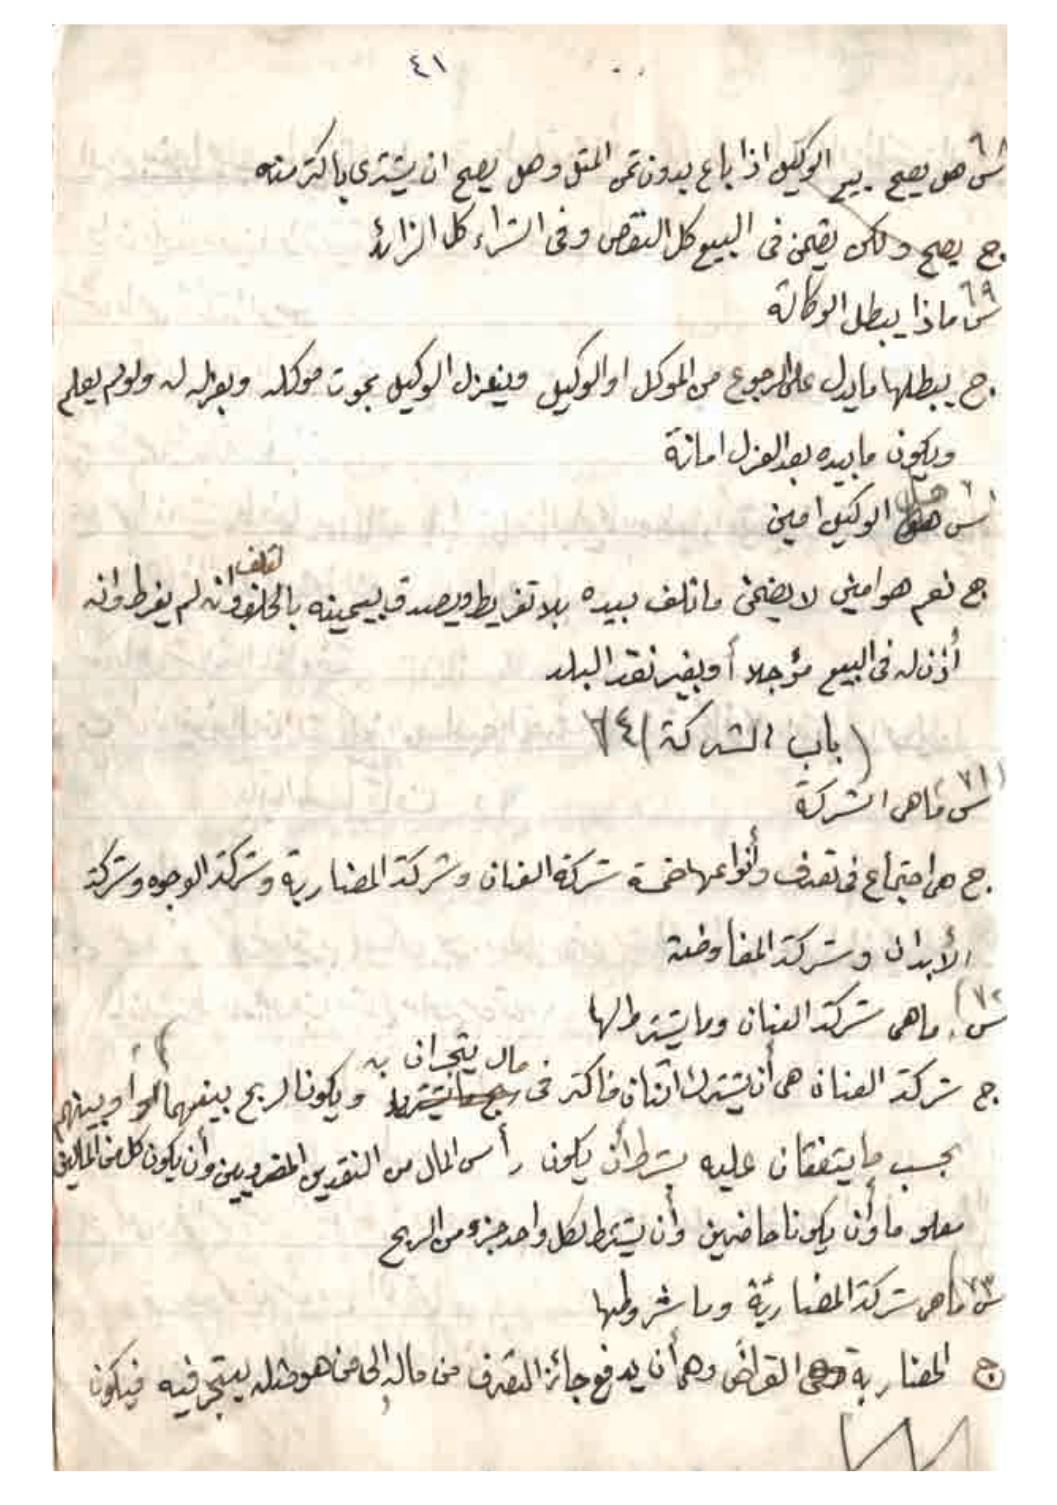 ٤١
س٦٨ هل يصح بيع الوكيل اذا باع بدون ثمن المثل وهل يصح ان يشترى باكثر منه
ج يصح ولكن يضمن فى البيع كل النقص وفى الشراء كل الزائد
س٦٩ ماذا يبطل الوكالة
ج يبطلها ما يدل على الرجوع من الموكل او الوكيل وينعزل الوكيل بموت موكله وبعزله له ولو لم يعلم
ويكون ما بيده بعد العزل امانة
س هل الوكيل امين
ج نعم هو امين لا يضمن ما تلف بيده بلا تفريط ويصدق بيمينه بالتلف وانه لم يفرط وانه
أذن له فى البيع مؤجلا أو بغير نقد البلد
(باب الشركة) ٦٤
س٧١ ما هى الشركة
ج هى اجتماع فى تصرف وأنواعها خمسة شركة العنان وشركة المضاربة وشركة الوجوه وشركة
الأبدان وشركة المفاوضة
س٧٢ ما هى شركة العنان وما يشترط لها
ج شركة العنان هى أن يشترك اثنان فاكثر فى مال يتجران به ويكون الربح بينهما أو بينهم
بحسب ما يتفقان عليه بشرط أن يكون رأس المال من النقدين المضروبين وأن يكون كل من المالين
معلوما وأن يكونا حاضرين وأن يشترط لكل واحد جزء من الربح
س٧٣ ما هى شركة المضاربة وما شروطها
ج المضاربة هى القراض وهى أن يدفع جائز التصرف من ماله الى من هو مثله ليتجر فيه فيكون